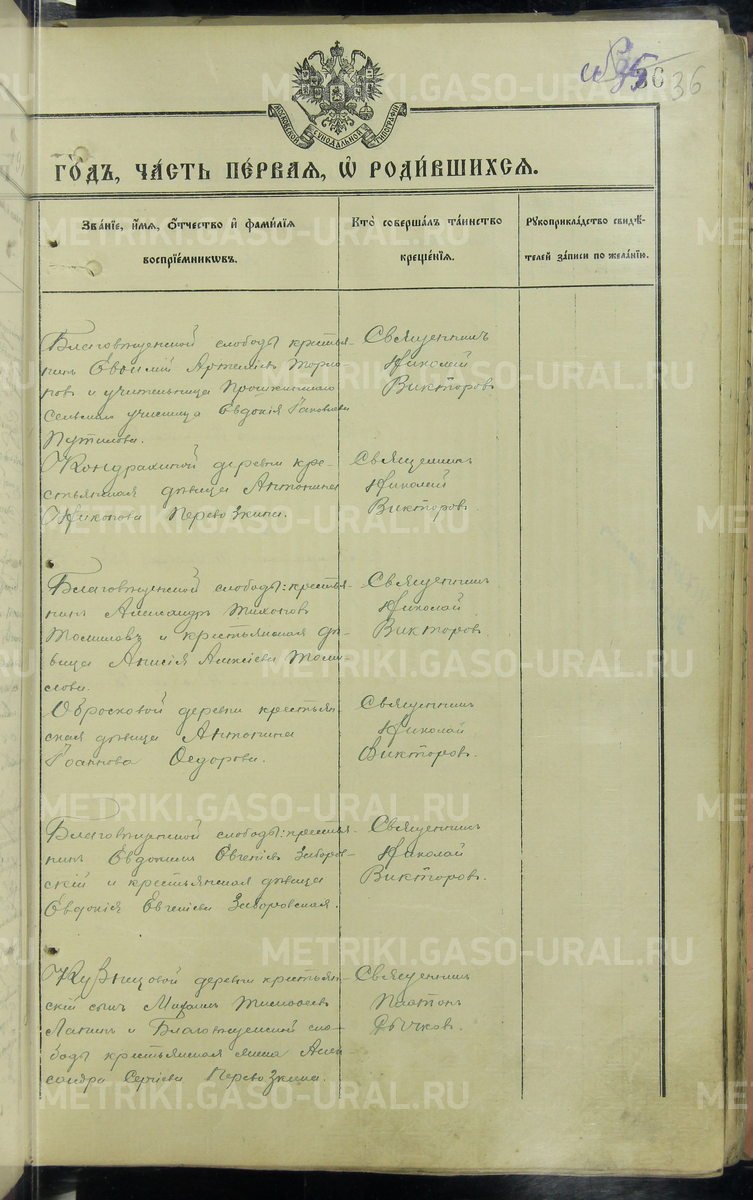 36
МОСКОВСКОЙ СѴНОДАЛЬНОЙ ТИПОГРАФІИ
Го́дъ, ча́сть пе́рвая, ѡ҆ роди́вшихсѧ.
Зва́нїе, и҆́мѧ, ѻ҆́тчество и҆ фами́лїѧ
воспрїе́мникѡвъ.
Кто̀ соверша́лъ та́инство
креще́нїѧ.
Рꙋкоприкла́дство свидѣ́-
телей за́писи по жела́нїю.
Благовѣщенской слободы крестья-
нинъ Евѳимій Артеміевъ
и учительница Прошкинскаго
сельскаго училища Евдокія Іаковлева
Путилова.
Священникъ
Николай
Викторовъ
Кондрахиной деревни кре-
стьянская дѣвица Антонина
Никонова Перевозкина.
Священникъ
Николай
Викторовъ.
Благовѣщенской слободы: крестья-
нинъ Александръ Тихоновъ
Томиловъ и крестьянская дѣ-
вица Анисія Алексіева Томи-
лова.
Священникъ
Николай
Викторовъ
Обросковой деревни крестьян-
ская дѣвица Антонина
Іоаннова Ѳедорова.
Священникъ
Николай
Викторовъ.
Благовѣщенской слободы: крестья-
нинъ Евдокимъ Евгеніевъ Заборов-
скій и крестьянская дѣвица
Евдокія Евгеніева Заборовская.
Священникъ
Николай
Викторовъ.
Кузнецовой деревни крестьян-
скій сынъ Михаилъ Тимоѳеевъ
Лапинъ и Благовѣщенской сло-
боды крестьянская Алек
сандра Сергіева Перевозкина.
Священникъ
Платонъ
Дьячковъ.
METRIKI.GASO-URAL.RU